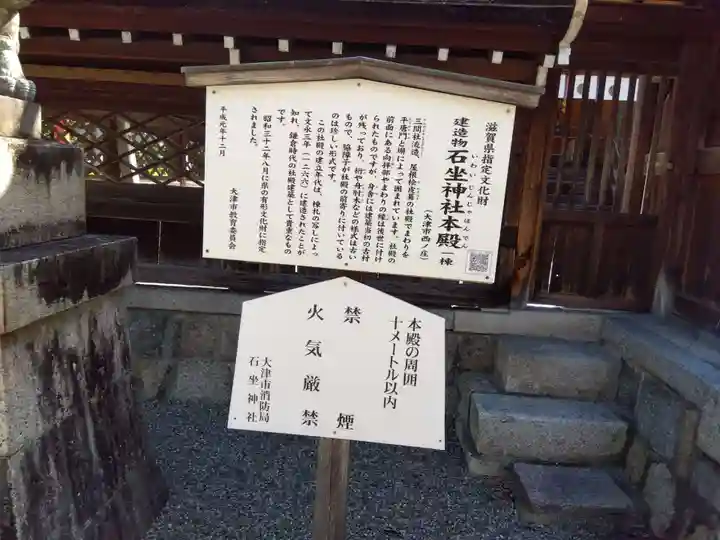 滋賀県指定文化財
建造物 石坐神社本殿 一棟
いわいじんじゃほんでん
(大津市西ノ庄)
三間社流造、屋根桧皮葺の社殿でまわりを
平唐門と塀によって囲まれています。社殿の
前面にある向拝部やまわりの縁は後世に付け
られたものですが、身舎には建築当初の古材
が残っており、桁や舟肘木などの様式は古い
もので、脇障子が社殿の前寄りに付いている
のは珍しい形式です。
この社殿の建立年代は、棟札の写しによっ
て文永三年(一二六六)に建造されたことが
知れ、鎌倉時代の社殿建築として貴重なもの
です。
昭和三十二年八月に県の有形文化財に指定
されました。
平成元年十二月
大津市教育委員会
本殿の周囲
十メートル以内
禁煙
火気厳禁
大津市消防局
石坐神社